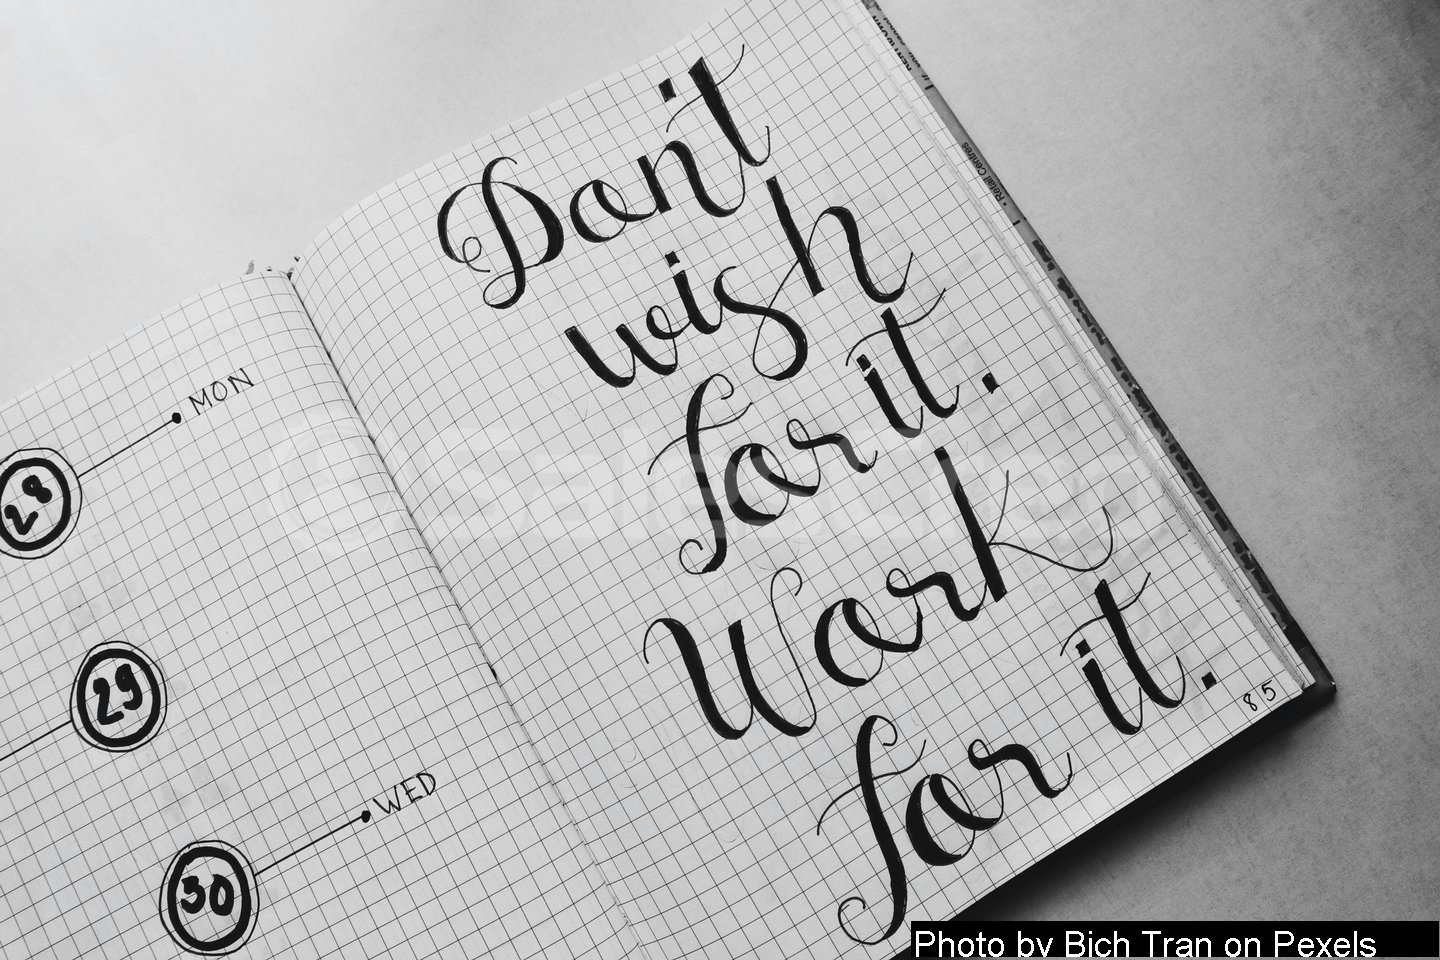 MON
28
29
WED
30
Don't
wish
for it.
Work
for it.
85
Retail Centres
Photo by Bich Tran on Pexels